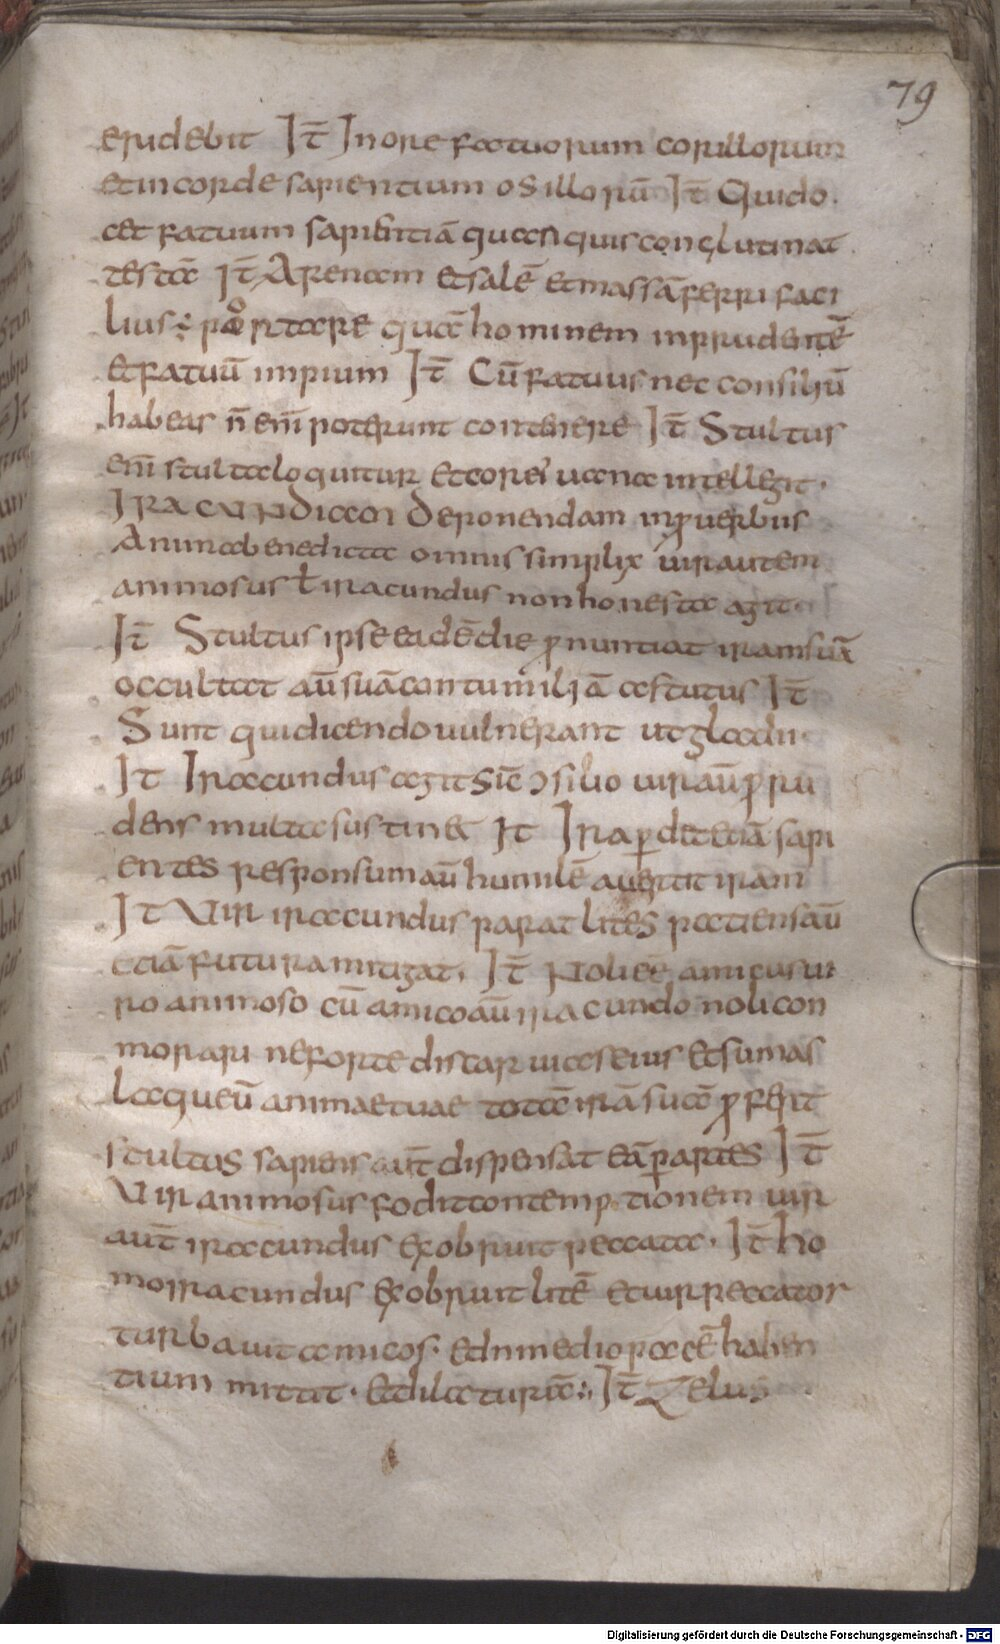 79
erudebit It̄ In ore fatuorum cor illorum
et in corde sapientium os illorū It̄ Qui do
cet fatuum sapientiā quasi quis conglutinat
testā It̄ Arenam et salē et massā ferri faci
lius portare quā hominem inprudentē
et fatuū impium It̄ Cū fatuis nec consiliū
habeas n̄ eni̅ poterunt continere It̄ Stultus
eni̅ stulta loquitur et cor ei vana intellegit.
IRACUNDIAM Deponendam in ꝓuerbiis
Anima benedicta omnis simplix uir autem
animosus ł iracundus non honesta agit
It̄ Stultus ipse eadē die ꝓnuntiat iram suā
occultat aū suā contumiliā astutus It̄
Sunt qui dicendo uulnerant ut gladii
It Iracundus agit sic̄ ɔsilio uir aū pru
dens multa sustinet It Ira ꝑdet etiā sapi
entes responsum aū humilē auertit iram
It Vir iracundus parat lites patiens aū
etiā futura mitigat. It̄ Noli eē amicus ui
ro animoso cū amico aū iracundo noli con
morari ne forte discas uias eius et sumas
laqueū animae tuae totā irā suā ꝓferit
stultus sapiens aut̄ dispensat eā ꝑ partes It̄
Vir animosus fodit contemptionem uir
aut̄ iracundus exobruit peccata. It̄ ho
mo iracundus exobruit litē et uir peccator
turbauit amicos. et in medio pacē haben
tium mittit. It̄ Zelus
Digitalisierung gefördert durch die Deutsche Forschungsgemeinschaft - DFG